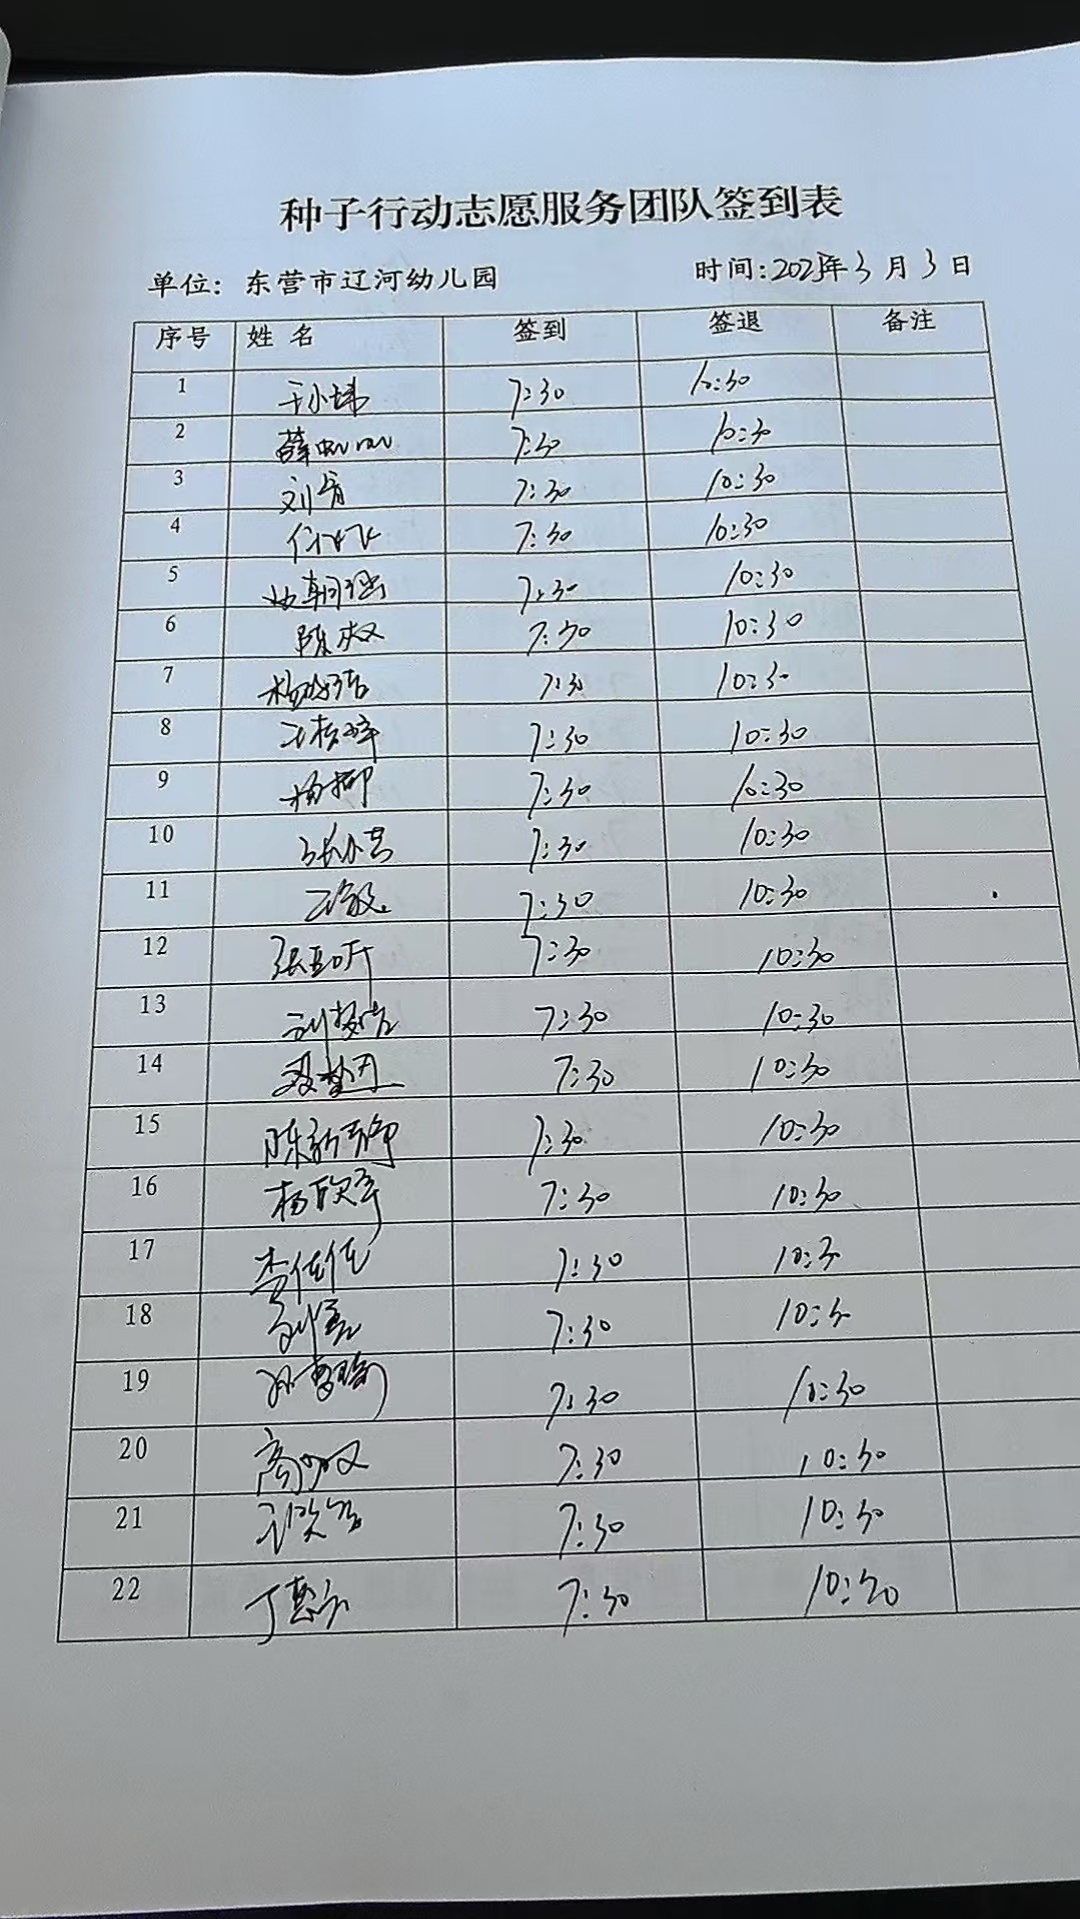 种子行动志愿服务团队签到表
单位：东营市辽河幼儿园 时间：2023年3月3日
序号 姓名 签到 签退 备注
1 于小炜 7:30 10:30
2 薛 7:30 10:30
3 刘 7:30 10:30
4 7:30 10:30
5 7:30 10:30
6 陈 7:30 10:30
7 杨 7:30 10:30
8 王 7:30 10:30
9 杨柳 7:30 10:30
10 张 7:30 10:30
11 王敏 7:30 10:30
12 张 7:30 10:30
13 刘 7:30 10:30
14 聂梦丹 7:30 10:30
15 陈 7:30 10:30
16 杨欣 7:30 10:30
17 李佳佳 7:30 10:30
18 刘 7:30 10:30
19 孙 7:30 10:30
20 高 7:30 10:30
21 7:30 10:30
22 丁 7:30 10:30